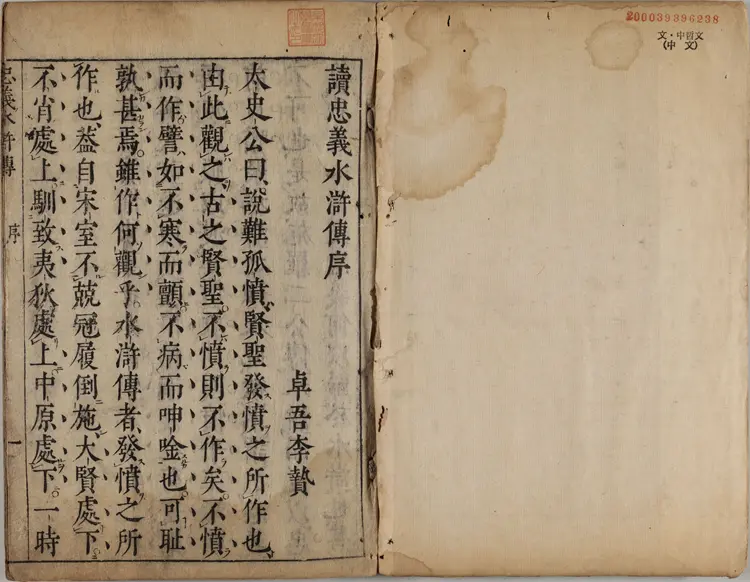 200039396238
文・中哲文
(中 文)
讀忠義水滸傳序
卓吾李贄
太史公曰說難孤憤賢聖發憤之所作也
由此觀之古之賢聖不憤則不作矣不憤
而作譬如不寒而顫不病而呻唫也可耻
孰甚焉雖作何觀乎水滸傳者發憤之所
作也葢自宋室不兢冠履倒施大賢處下
不肖處上馴致夷狄處上中原處下一時
忠義水滸傳 序 一